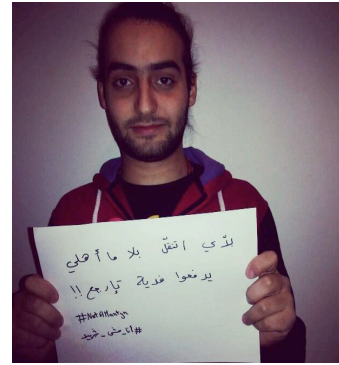 لأني اتنقّل بلا ما أهلي
يدفعوا فدية تإرجع !!
#NotAMartyr
#انا_مش_شهيد